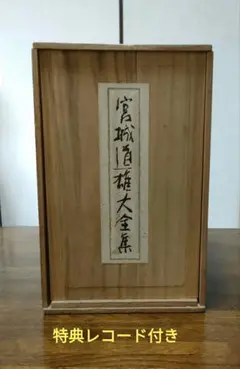 宮城道雄大全集
特典レコード付き